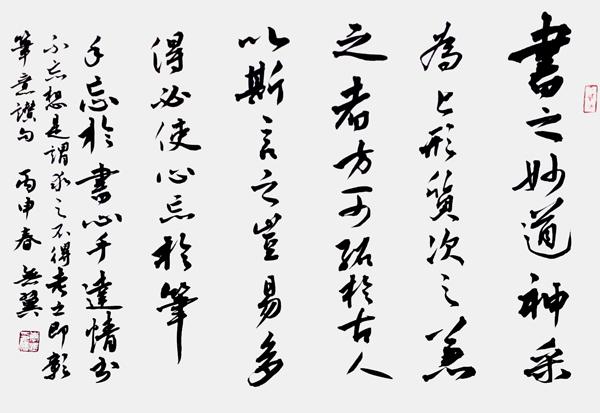 書之妙道神采
為上形質次之兼
之者方可紹於古人
以斯言之豈易多
得必使心忘於筆
手忘於書心手達情書
不忘想是謂求之不得考之即彰
筆意讚句 丙申春 無翼